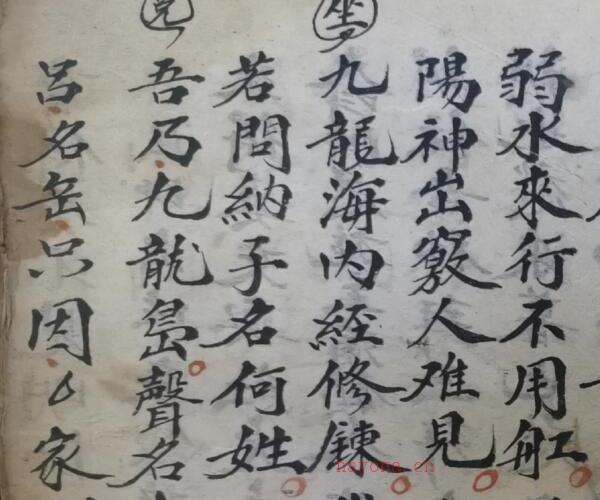 弱水來行不用舡
陽神出竅人难見
坐
九龍海内經修鍊
若問納子名何姓
吾乃九龍島聲名
吕名岳只因厶家
hayona.cn